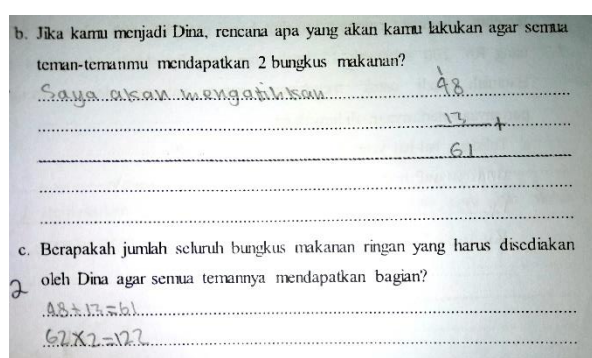 b. Jika kamu menjadi Dina, rencana apa yang akan kamu lakukan agar semua
teman-temanmu mendapatkan 2 bungkus makanan?
Saya akan
1
48
13 +
61
c. Berapakah jumlah seluruh bungkus makanan ringan yang harus disediakan
2 oleh Dina agar semua temannya mendapatkan bagian?
48+13=61
62X2=122